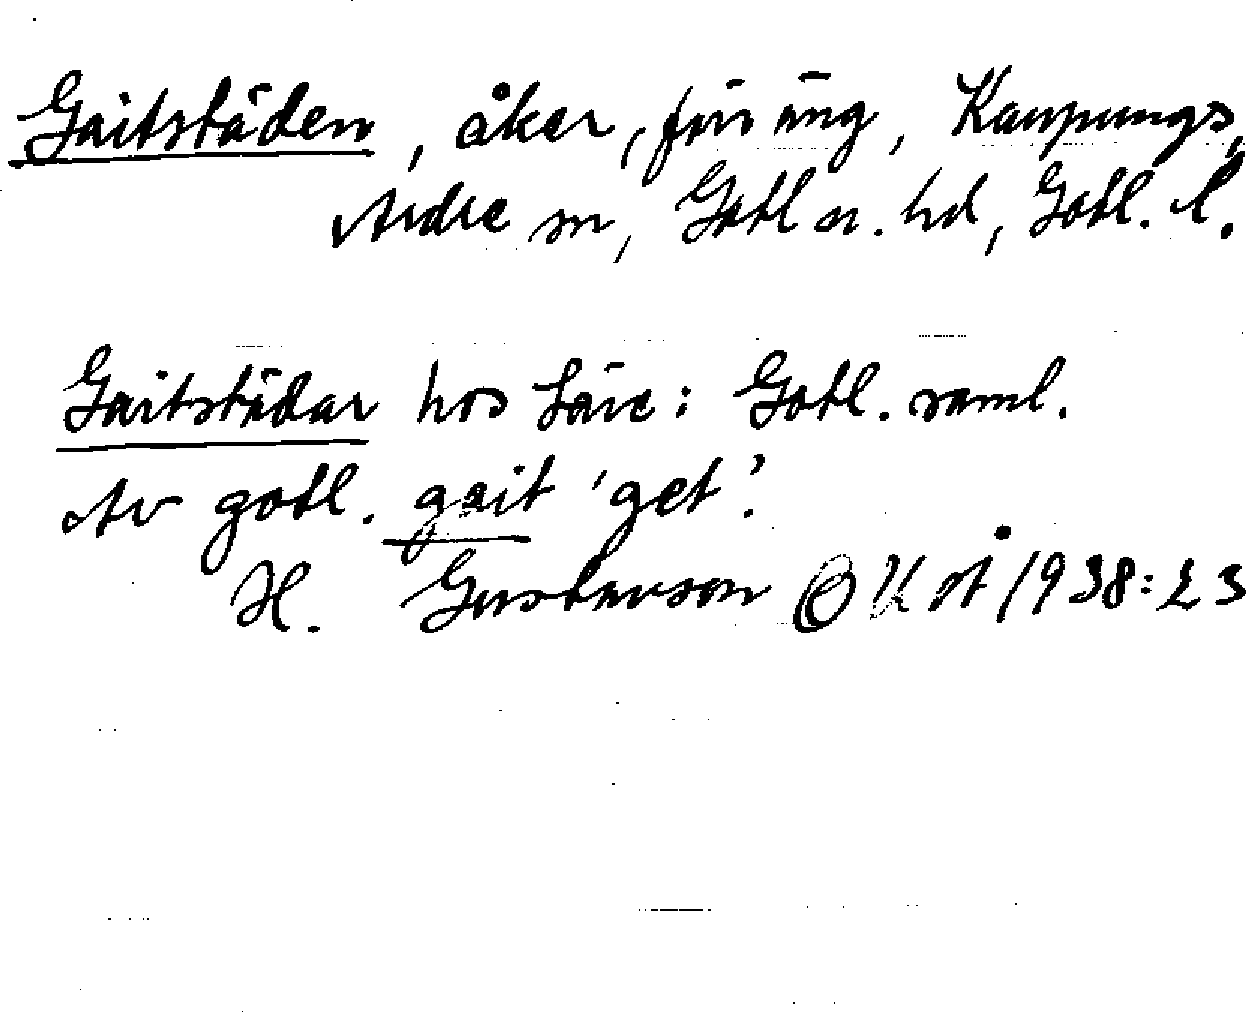 Gaitstäden, åker, förr äng, Kaupungs,
Ardre sn, Gotl n. hd, Gotl. l.
Gaitstädar hos Säve: Gotl. saml.
Av gotl. gait 'get'.
H. Gustavson OUÅ 1938:23